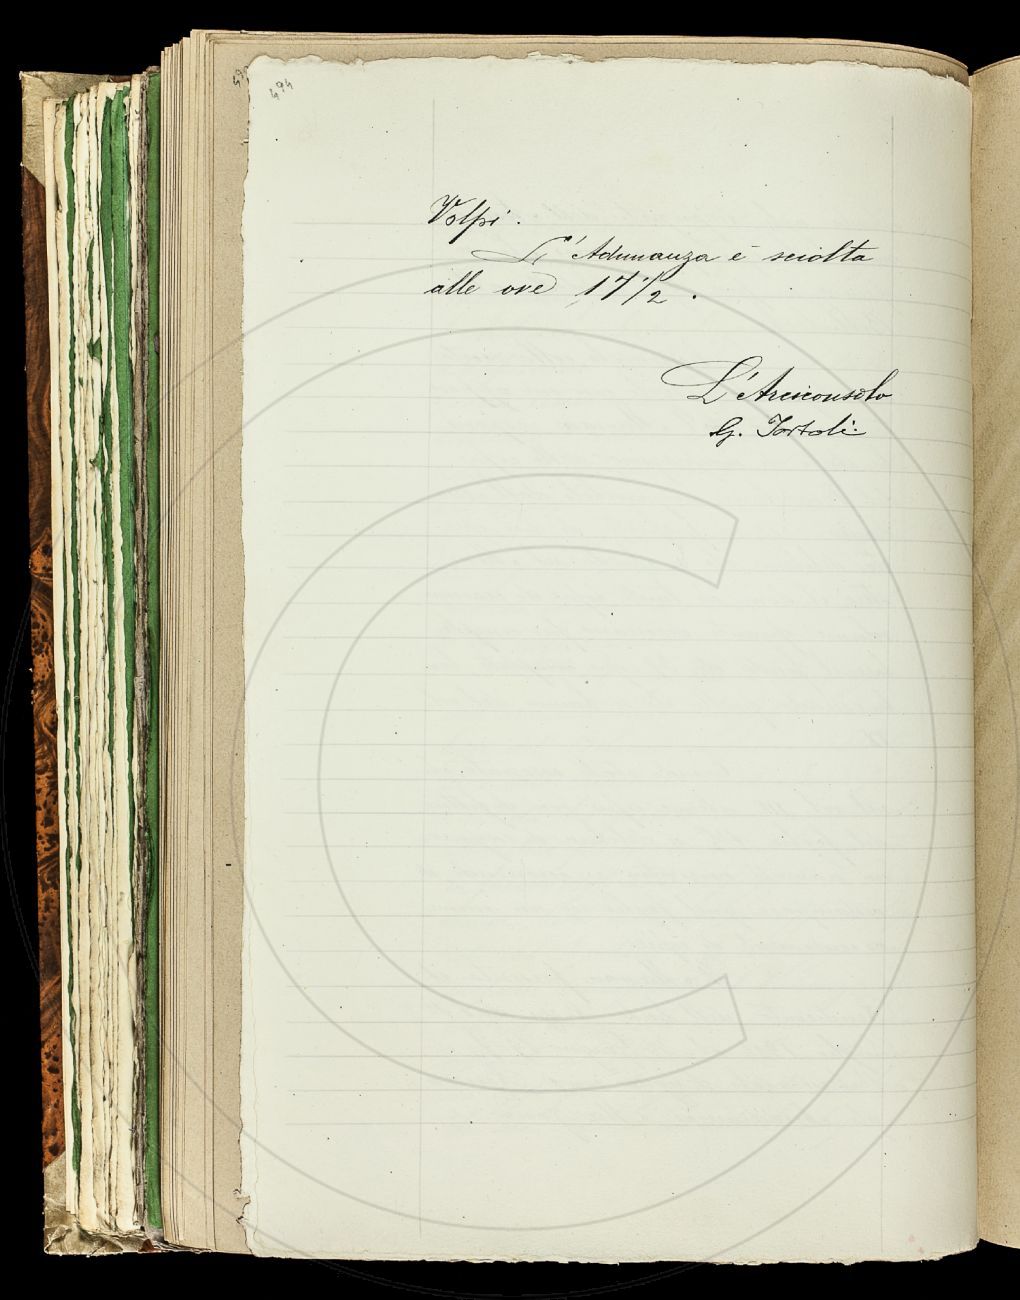 494
Volpi.
L'Adunanza è sciolta
alle ore 17 1/2.
L'Arciconsolo
G. Tortoli